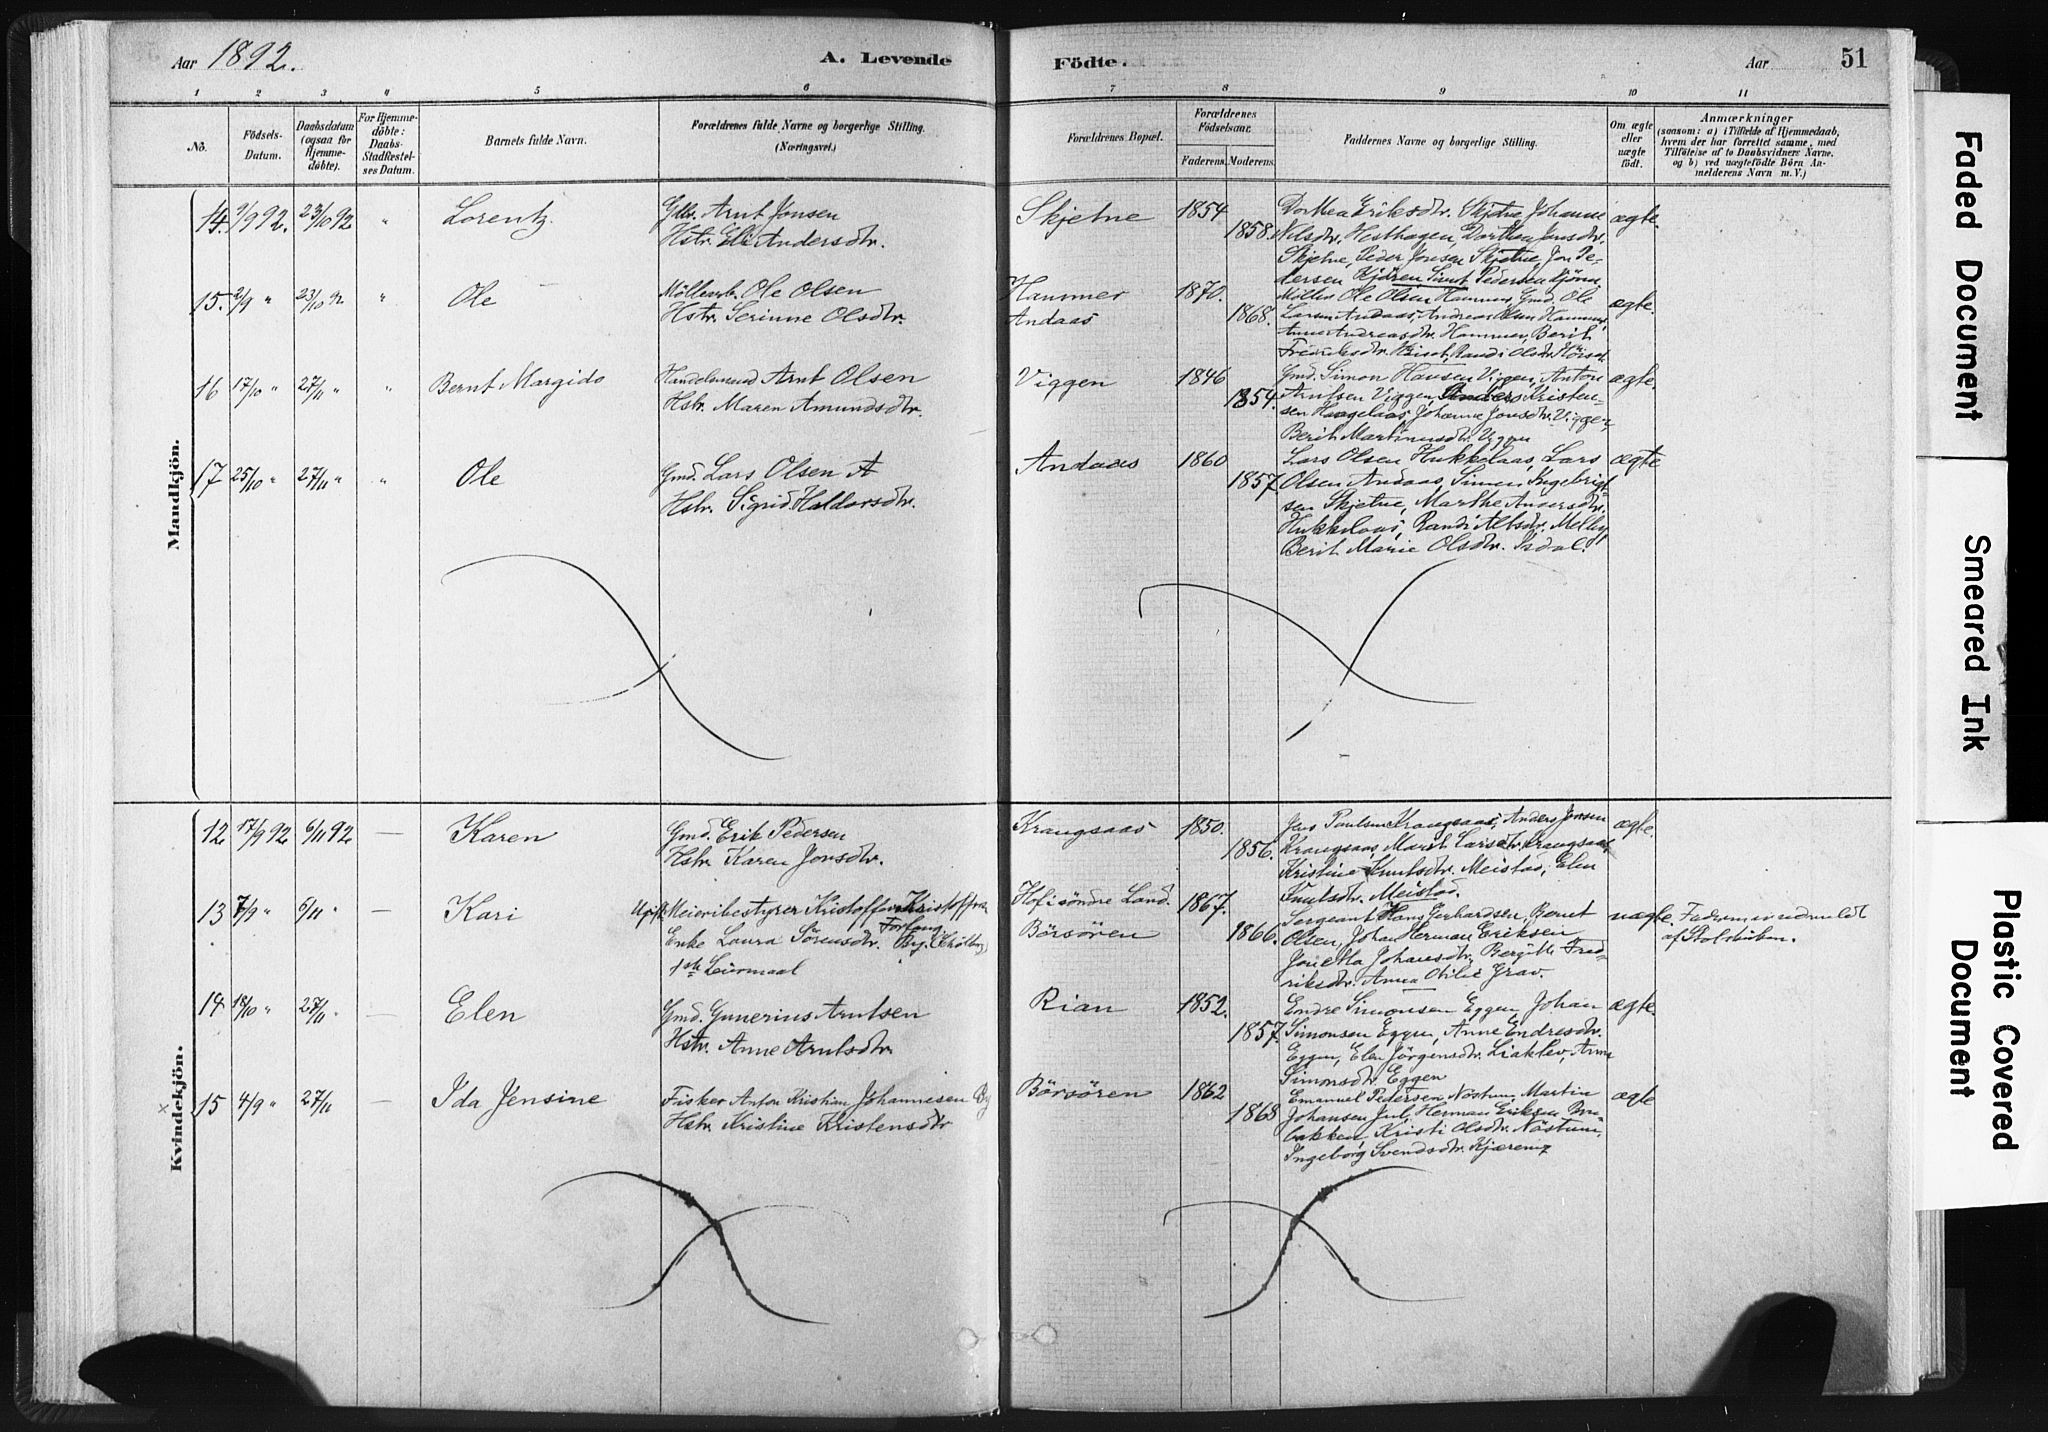 Aar 1892.
A. Levende
Födte.
Aar
51
1 2 3 4 5 6 7 8 9 10 11
No.
Födsels-
Datum.
Daabsdatum
(ogsaa for
Hjemme-
döbte).
For Hjemme-
döbte:
Daabs-
Stadfæstel-
ses Datum.
Barnets fulde Navn.
Forældrenes fulde Navne og borgerlige Stilling.
(Næringsvei.)
Forældrenes Bopæl.
Forældrenes
Födselsaar.
Faderens. Moderens.
Faddernes Navne og borgerlige Stilling.
Om ægte
eller
uægte
födt.
Anmærkninger
(saasom: a) i Tilfælde af Hjemmedaab,
hvem der har forrettet samme, med
Tilföielse af to Daabsvidners Navne,
og b) ved uægtefödte Börn An-
melderens Navn m. V.)
Mandkjön.
14. 2/9 92. 23/10 92 " Lorentz.
Arnt Jonsen
Hstr. Eli Andersdtr.
Skjetne 1854
1858.
Dorthea Eriksdtr. Skjetne, Johanne
Nilsdtr. Hesthagen, Dorthea Jonsdtr.
Skjetne, Peder Jonsen Skjetne, Jon Pe-
dersen Pedersen
ægte.
15. 2/9 " 23/10 92 " Ole
Ole Olsen
Hstr. Serinne Olsdtr.
Hammer
Andaas
1870.
1868.
Ole Olsen Hammer, Gmd. Ole
Larsen Andaas, Andreas Olsen Hammer,
Anne Andreasdtr. Hammer, Berit
Fredriksdtr. Randi Olsdtr.
ægte.
16 17/10 " 27/11 " " Bernt Margido
Handelsmand Arnt Olsen
Hstr. Maren Amundsdtr.
Viggen 1846
1854.
Gmd. Simon Hansen Viggen, Anton
Arntsen Viggen, Anders Kristen-
sen Johanne Jonsdtr. Viggen
Berit Martinusdtr. Viggen
ægte.
17 25/10 " 27/11 " " Ole
Gmd. Lars Olsen A
Hstr. Sigrid Haldorsdtr.
Andaas 1860
1857.
Lars Olsen Hukkelaas, Lars
Olsen Andaas, Simen Ingebrigt-
sen Skjetne, Marthe Andersdtr.
Hukkelaas, Randi Melby
Berit Marie Olsdtr. Isdal.
ægte
Kvindekjön.
12. 17/9 92. 6/11 92. — Karen
Gmd. Erik Pedersen
Hstr. Karen Jonsdtr.
Krangsaas 1850.
1856.
Jens Paulsen Krangsaas, Anders Jonsen
Krangsaas, Marit Larsdtr. Krangsaas,
Kristine Knutsdtr. Meistad, Elen
Knutsdtr. Meistad.
ægte.
13 7/9 " 6/11 " — Kari
Ugift Meieribestyrer Kristoffer Kristoffersen
Forlang
Enke Laura Sörensdtr.
1ste Leiermaal
Hof i söndre Land.
Börsören
1867.
1866.
Sergeant Hans Gerhardsen, Bernt
Olsen, Johan Herman Eriksen
Johansdtr. Bergitte Fred-
riksdtr. Anna Otilie Grav.
uægte.
Faderen er udmeldt
af Statskirken.
14 18/10 " 27/11 " — Elen
Gmd. Gunerius Arntsen
Hstr. Anne Arntsdtr.
Rian 1852.
1857.
Endre Simonsen Eggen, Johan
Simonsen Eggen, Anne Endresdtr.
Eggen, Elen Jörgensdtr. Liaklev, Anne
Simonsdtr. Eggen
ægte.
x 15 4/9 " 27/11 — Ida Jensine
Fisker Anton Kristian Johannesen By
Hstr. Kristine Kristensdtr
Börsören 1862
1868
Emanuel Pedersen Nöstum, Martin
Johansen Jul, Herman Eriksen Bru-
bakken, Kristi Olsdtr. Nöstum,
Ingeborg Svendsdtr. Kjæreng
ægte
Faded Document
Smeared Ink
Plastic Covered
Document